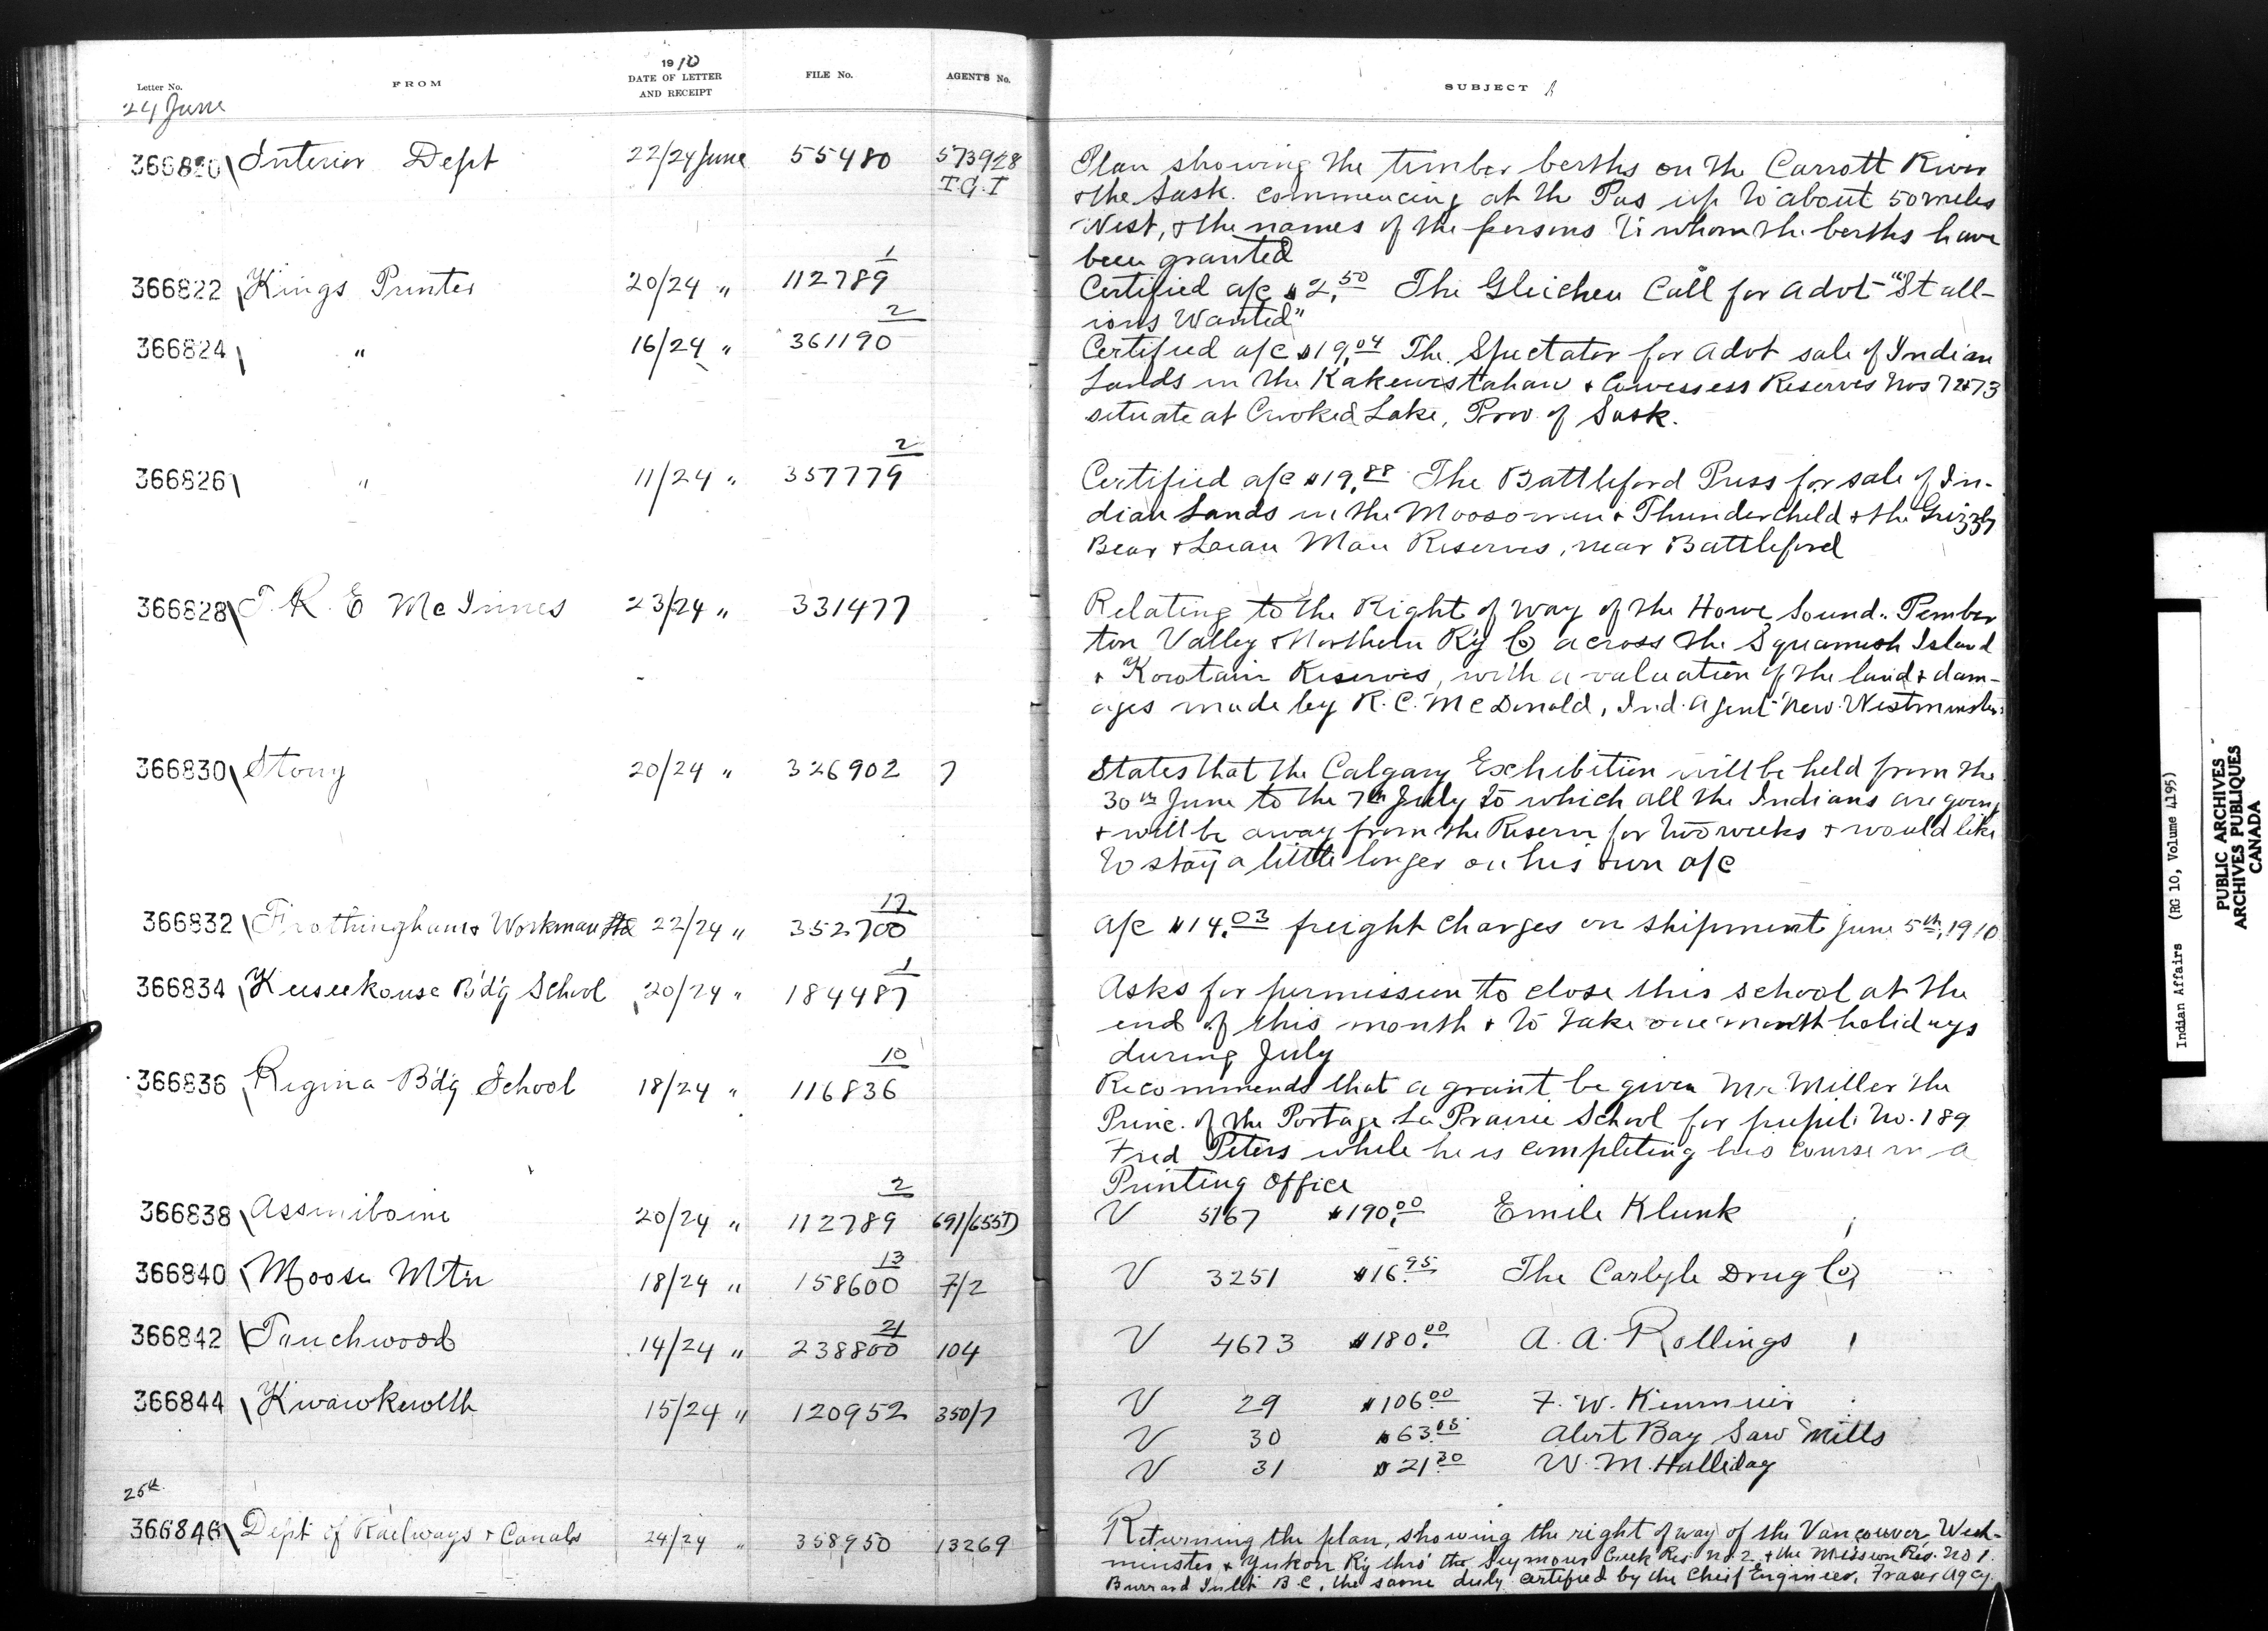 Letter No.
FROM
1910
DATE OF LETTER
AND RECEIPT
FILE No.
AGENT'S No.
SUBJECT
24 June
366820 Interior Dept 22/24 June 55480 573928
T.G.T
Plan showing the timber berths on the Carrott River
& the Sask. commencing at the Pas up to about 50 miles
West, & the names of the persons to whom the berths have
been granted
366822 Kings Printer 20/24 " 112789 1
Certified a/c $2.50 The Gleichen Call for advt "Stall-
ions Wanted"
366824 " 16/24 " 361190 2
Certified a/c $19.04 The Spectator for advt sale of Indian
Lands in the Kakewistahaw & Cowessess Reserves Nos 72&73
situate at Crooked Lake, Prov. of Sask.
366826 " 11/24 " 357779 2
Certified a/c $19.88 The Battleford Press for sale of In-
dian Lands in the Moosomin & Thunderchild & the Grizzly
Bear & Lean Man Reserves, near Battleford
366828 T. R. E McInnes 23/24 " 331477
Relating to the Right of way of the Howe Sound. Pember
ton Valley & Northern Ry Co across the Squamish Island
& Kowtain Reserves, with a valuation of the land & dam-
ages made by R. C. McDonald, Ind. Agent New Westminster
366830 Stony 20/24 " 326902 7
States that the Calgary Exhibition will be held from the
30th June to the 7th July to which all the Indians are going
& will be away from the Reserve for two weeks & would like
to stay a little longer on his own a/c
366832 Frothingham & Workman Ltd 22/24 " 352700 17
a/c $14.03 freight charges on shipment June 5th, 1910
366834 Keeseekouse B'd'g School 20/24 " 184487 1
Asks for permission to close this school at the
end of this month & to take one month holidays
during July
366836 Regina Bd'g School 18/24 " 116836 10
Recommends that a grant be given Mr. Miller the
Princ. of the Portage La Prairie School for pupil No. 189
Fred Peters while he is completing his course in a
Printing Office
366838 Assiniboine 20/24 " 112789 2 691/655D
V 5167 $190.00 Emile Klunk
366840 Moose Mtn 18/24 " 158600 13 7/2
V 3251 $16.95 The Carlyle Drug Co
366842 Touchwood 14/24 " 238800 21 104
V 4673 $180.00 A. A. Rollings
366844 Kwawkewlth 15/24 " 120952 350/7
V 29 $106.00 F. W. Kinmuir
V 30 $63.05 Alert Bay Saw Mills
V 31 $21.30 W. M. Halliday
25th
366846 Dept of Railways & Canals 24/24 " 358950 13269
Returning the plan, showing the right of way of the Vancouver West-
minster & Yukon Ry thro' the Seymour Creek Res. No. 2 & the Mission Res. No 1.
Burrard Inlet B.C, the same duly certified by the Chief Engineer, Fraser Agcy.
Indian Affairs (RG 10, Volume 4195)
PUBLIC ARCHIVES
ARCHIVES PUBLIQUES
CANADA